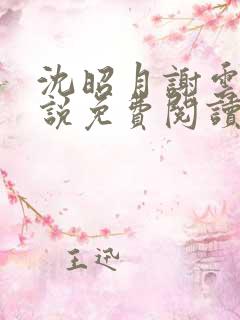 沈昭月謝雲
說免費閱讀
王迅